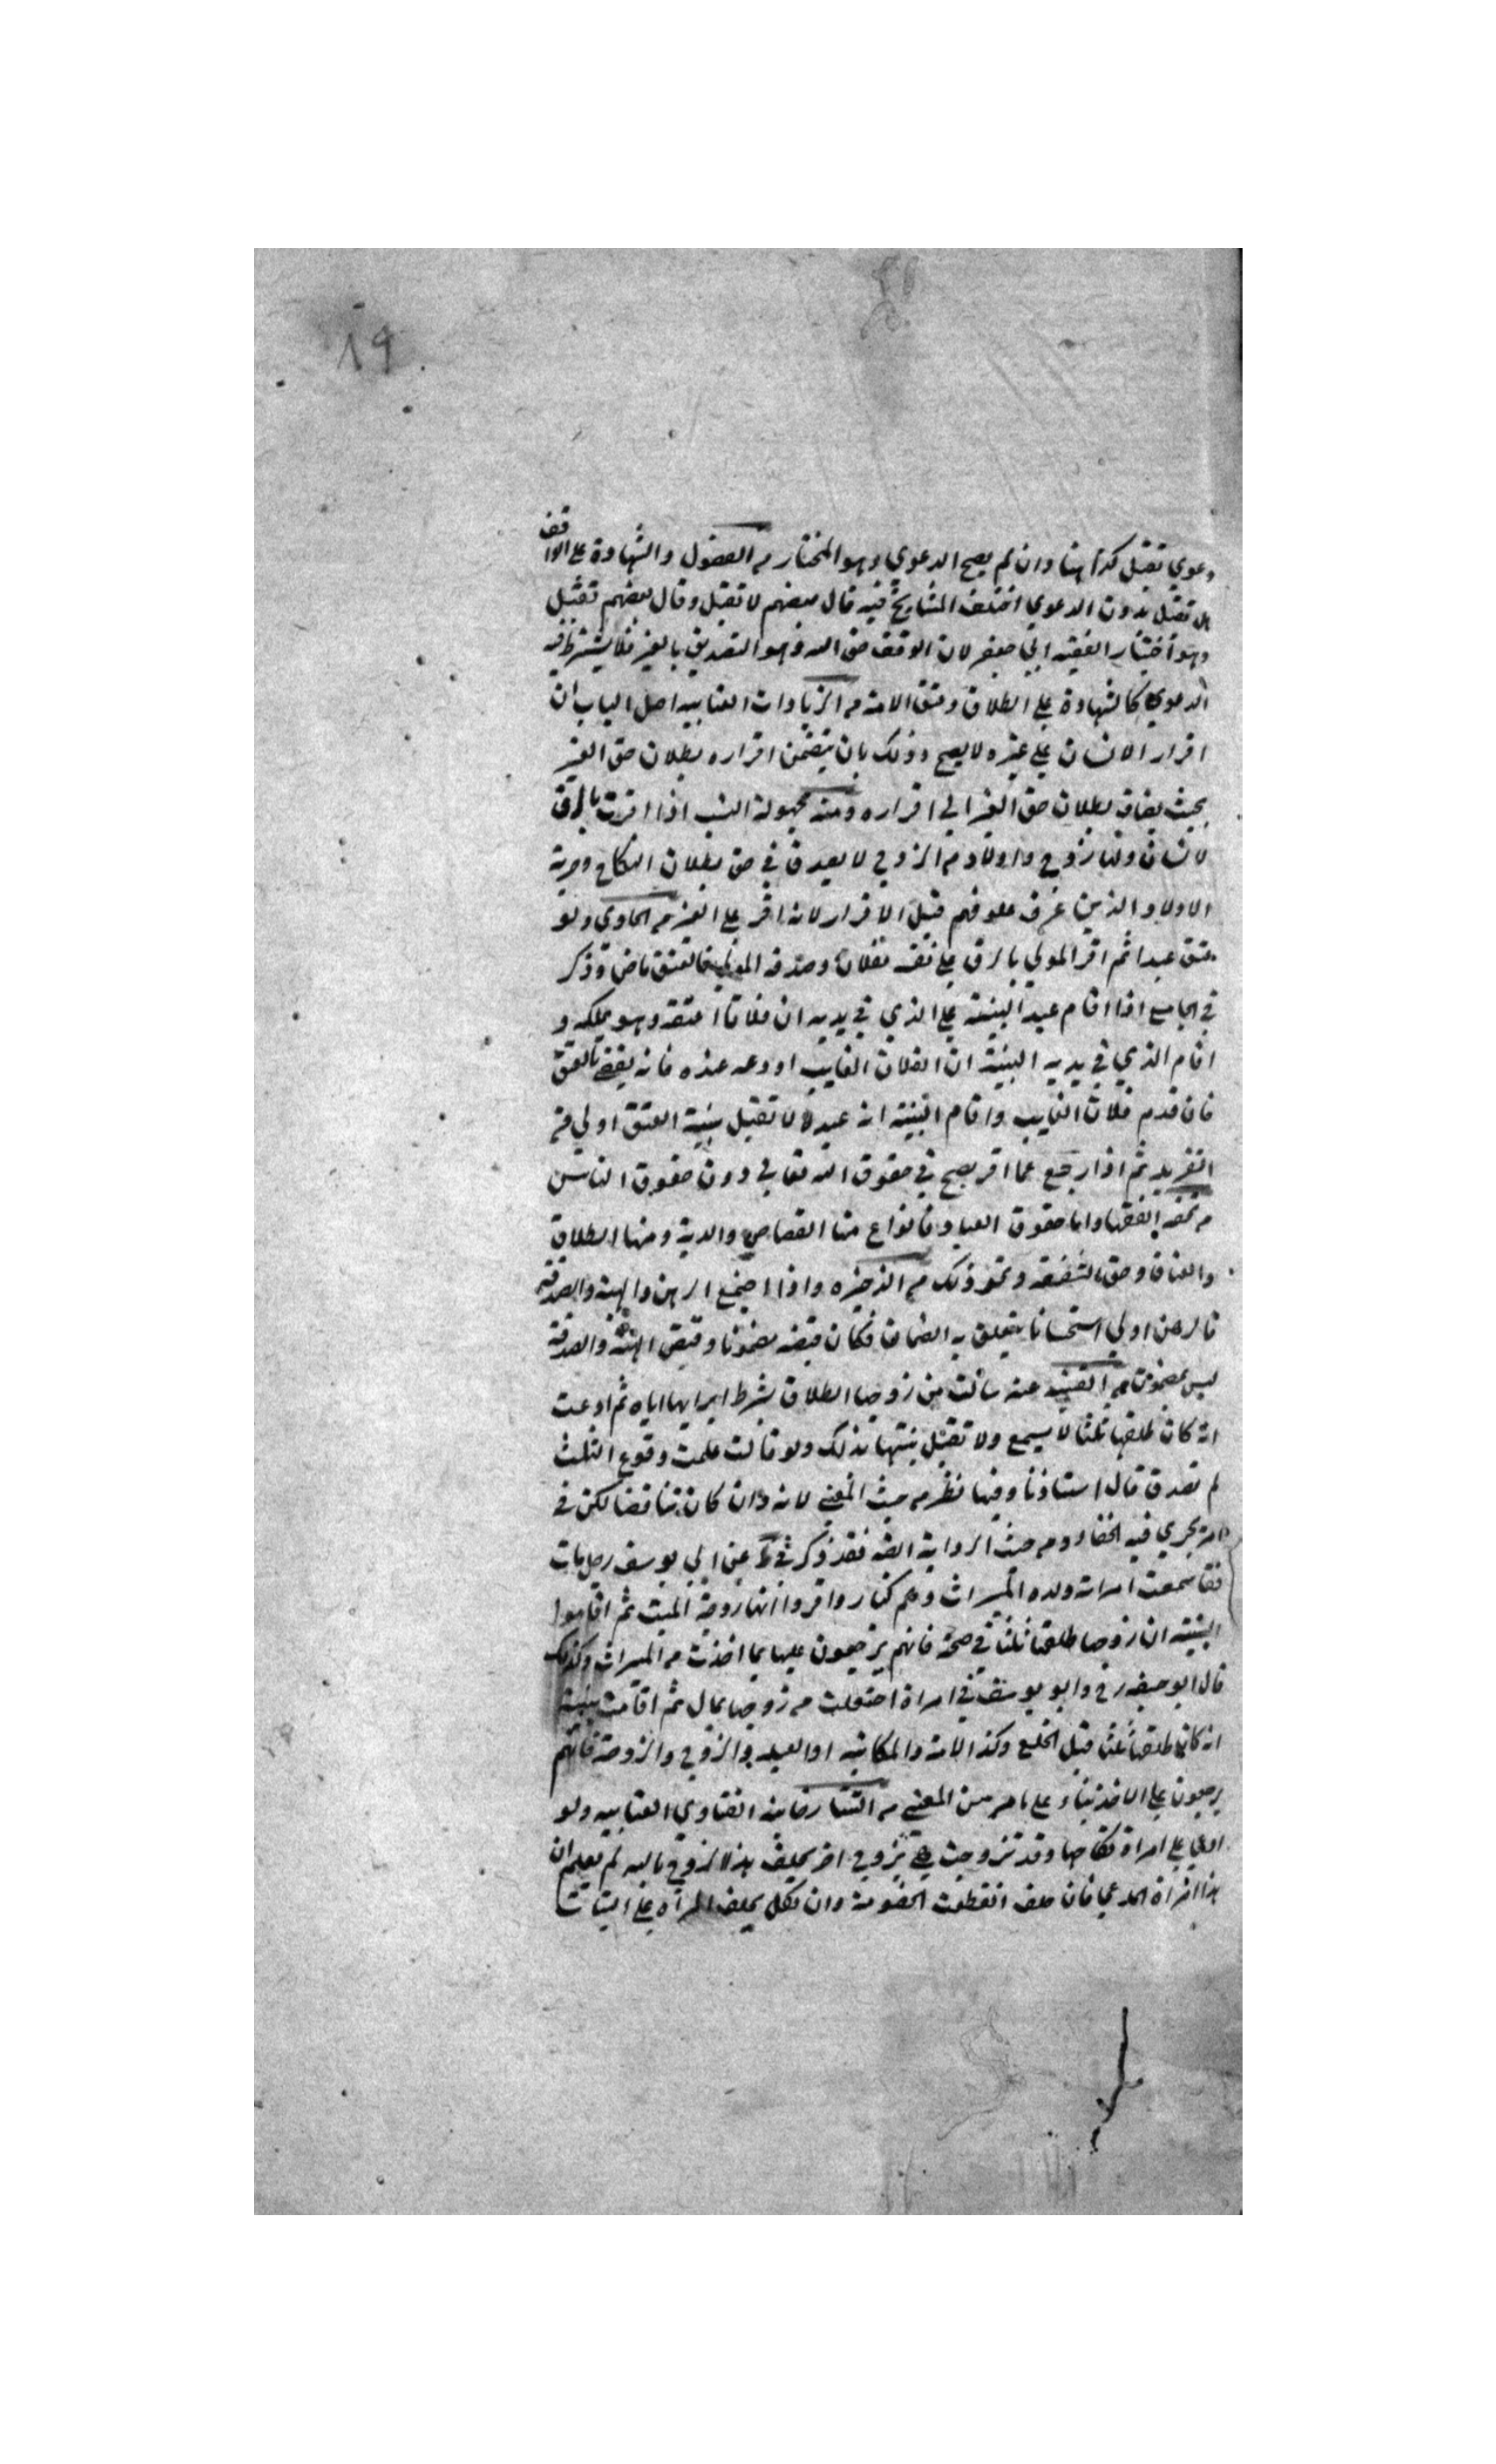 ١٩
دعوي تقبل كذا هنا وان لم يصح الدعوي وهو المختار من الفصول والشهادة علي الواقف
هل تقبل بدون الدعوي اختلف المشايخ فيه قال بعضهم لا تقبل وقال بعضهم تقبل
وهو اختيار الفقيه ابي جعفر لان الوقف حق الله وهو التصديق بالغير فلا يشترط فيه
الدعوي كالشهادة علي الطلاق وعتق الامة من الزيادات العتابيه اصل الباب ان
اقرار الانسان علي غيره لا يصح وذلك بان يتضمن اقراره بطلان حق الغير
بحيث يضاف بطلان حق الغير الي اقراره ومنه مجهولة النسب اذا اقرت بالرق
لانسان ولها زوج واولاد من الزوج لا يصدق في حق بطلان النكاح وحرية
الاولاد الذين عرف علوقهم قبل الاقرار لانه اقر علي الغير من الحاوي ولو
عتق عبدا ثم اقر المولي بالرق علي نفسه لفلان وصدقه المولي فالعتق ماض وذكر
في الجامع اذا اقام عبد البينة علي الذي في يديه ان فلانا اعتقه وهو يملكه و
اقام الذي في يديه البينة ان الفلان الغايب اودعه عنده فانه يقضي بالعتق
فان قدم فلان الغايب واقام البينة انه عبده لا تقبل بينة العتق اولي من
التفريد ثم اذا رجع عما اقر يصح في حقوق الله تعالي دون حقوق الناس
من تحفه الفقها واما حقوق العباد فانواع منها القصاص والدية ومنها الطلاق
والعتاق وحق الشفعة ونحو ذلك من الذخيره واذا اجتمع الرهن والهبة والصدقة
فالرهن اولي استحسانا يتعلق به الضمان فكان قبضه مضمونا وقبض الهبة والصدقة
ليس بمضمون من القنيه عنه سالت من زوجها الطلاق بشرط ابرايها اياه ثم ادعت
انه كان طلقها ثلثا لا يسمع ولا تقبل بينتها بذلك ولو قالت علمت وقوع الثلث
لم تصدق قال استاذنا وفيها نظر من حيث المعني لانه وان كان تناقضا لكن في
امر يجري فيه الخفا ومن حيث الرواية فقد ذكر في عن ابي يوسف رجل مات
فقاسمت امراته ولده الميراث وهم كبار واقروا انها زوجة الميت ثم اقاموا
البينة ان زوجها طلقها ثلثا في صحة فانهم يرجعون عليها بما اخذت من الميراث وكذلك
قال ابو حنيفه رح وابو يوسف في امراة اختلعت من زوجها بمال ثم اقامت بينة
انه كان طلقها ثلثا قبل الخلع وكذا الامة والمكاتبه او العبد والزوج والزوجة فانهم
يرجعون علي الاخذ بناء علي ما مر من المعني من التتارخانيه الفتاوي العتابيه ولو
ادعي علي امراة نكاحها وقد تزوجت بزوج اخر يحلف هذا الزوج بالله لم يعلم ان
هذا امراة المدعي فان حلف انقطعت الخصومة وان نكل يحلف المراة علي البتات